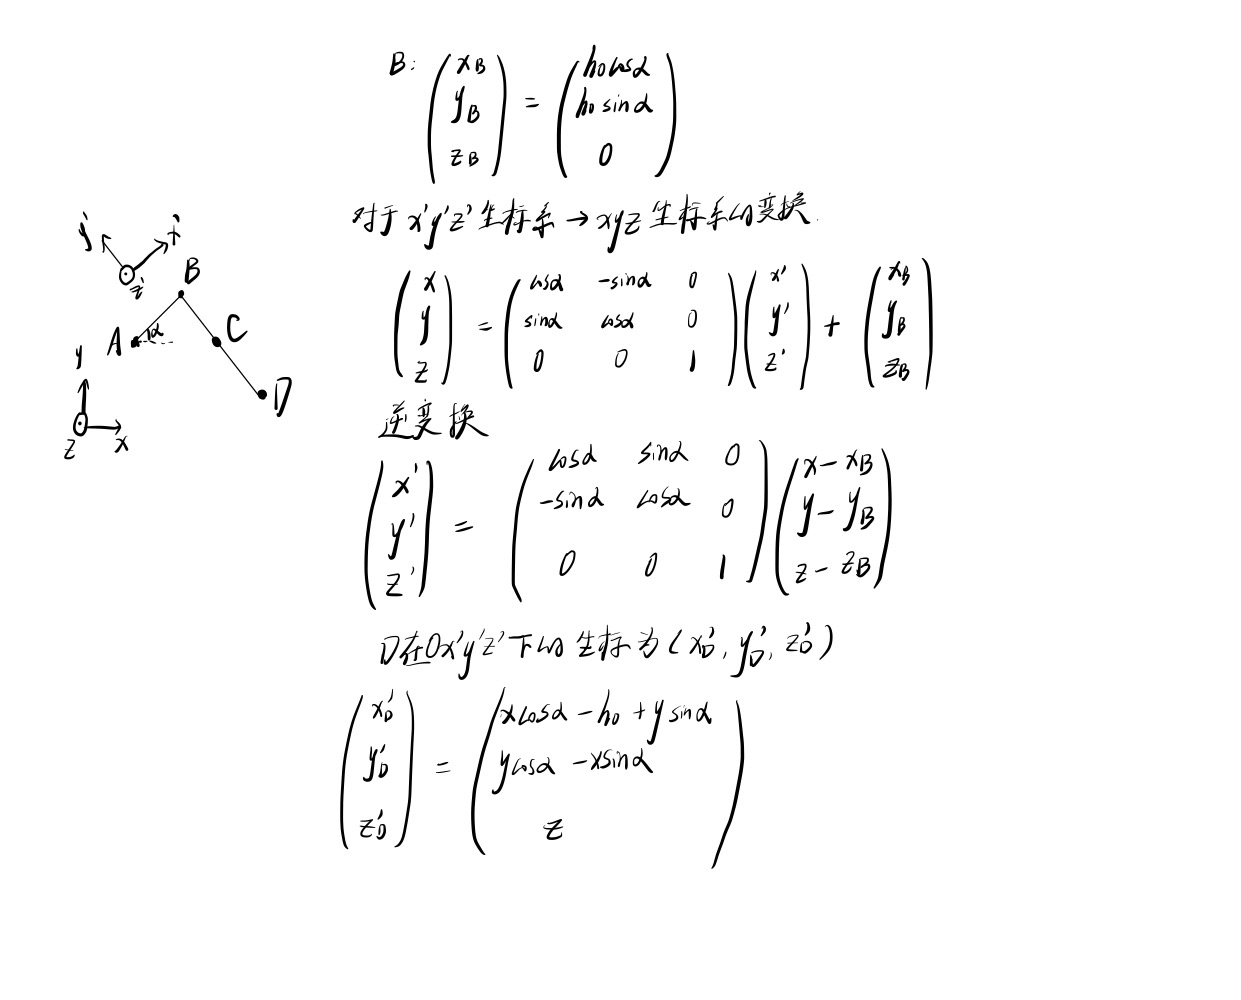 B: (x_B y_B z_B) = (h₀cosα h₀sinα 0)
对于x'y'z'坐标系→xyz坐标系的变换.
(x y z) = (cosα -sinα 0 sinα cosα 0 0 0 1)(x' y' z') + (x_B y_B z_B)
逆变换
(x' y' z') = (cosα sinα 0 -sinα cosα 0 0 0 1)(x-x_B y-y_B z-z_B)
D在Ox'y'z'下的坐标为(x_D', y_D', z_D')
(x_D' y_D' z_D') = (xcosα-h₀+ysinα ycosα-xsinα z)
y' x'
z' B
A α C
y D
z x